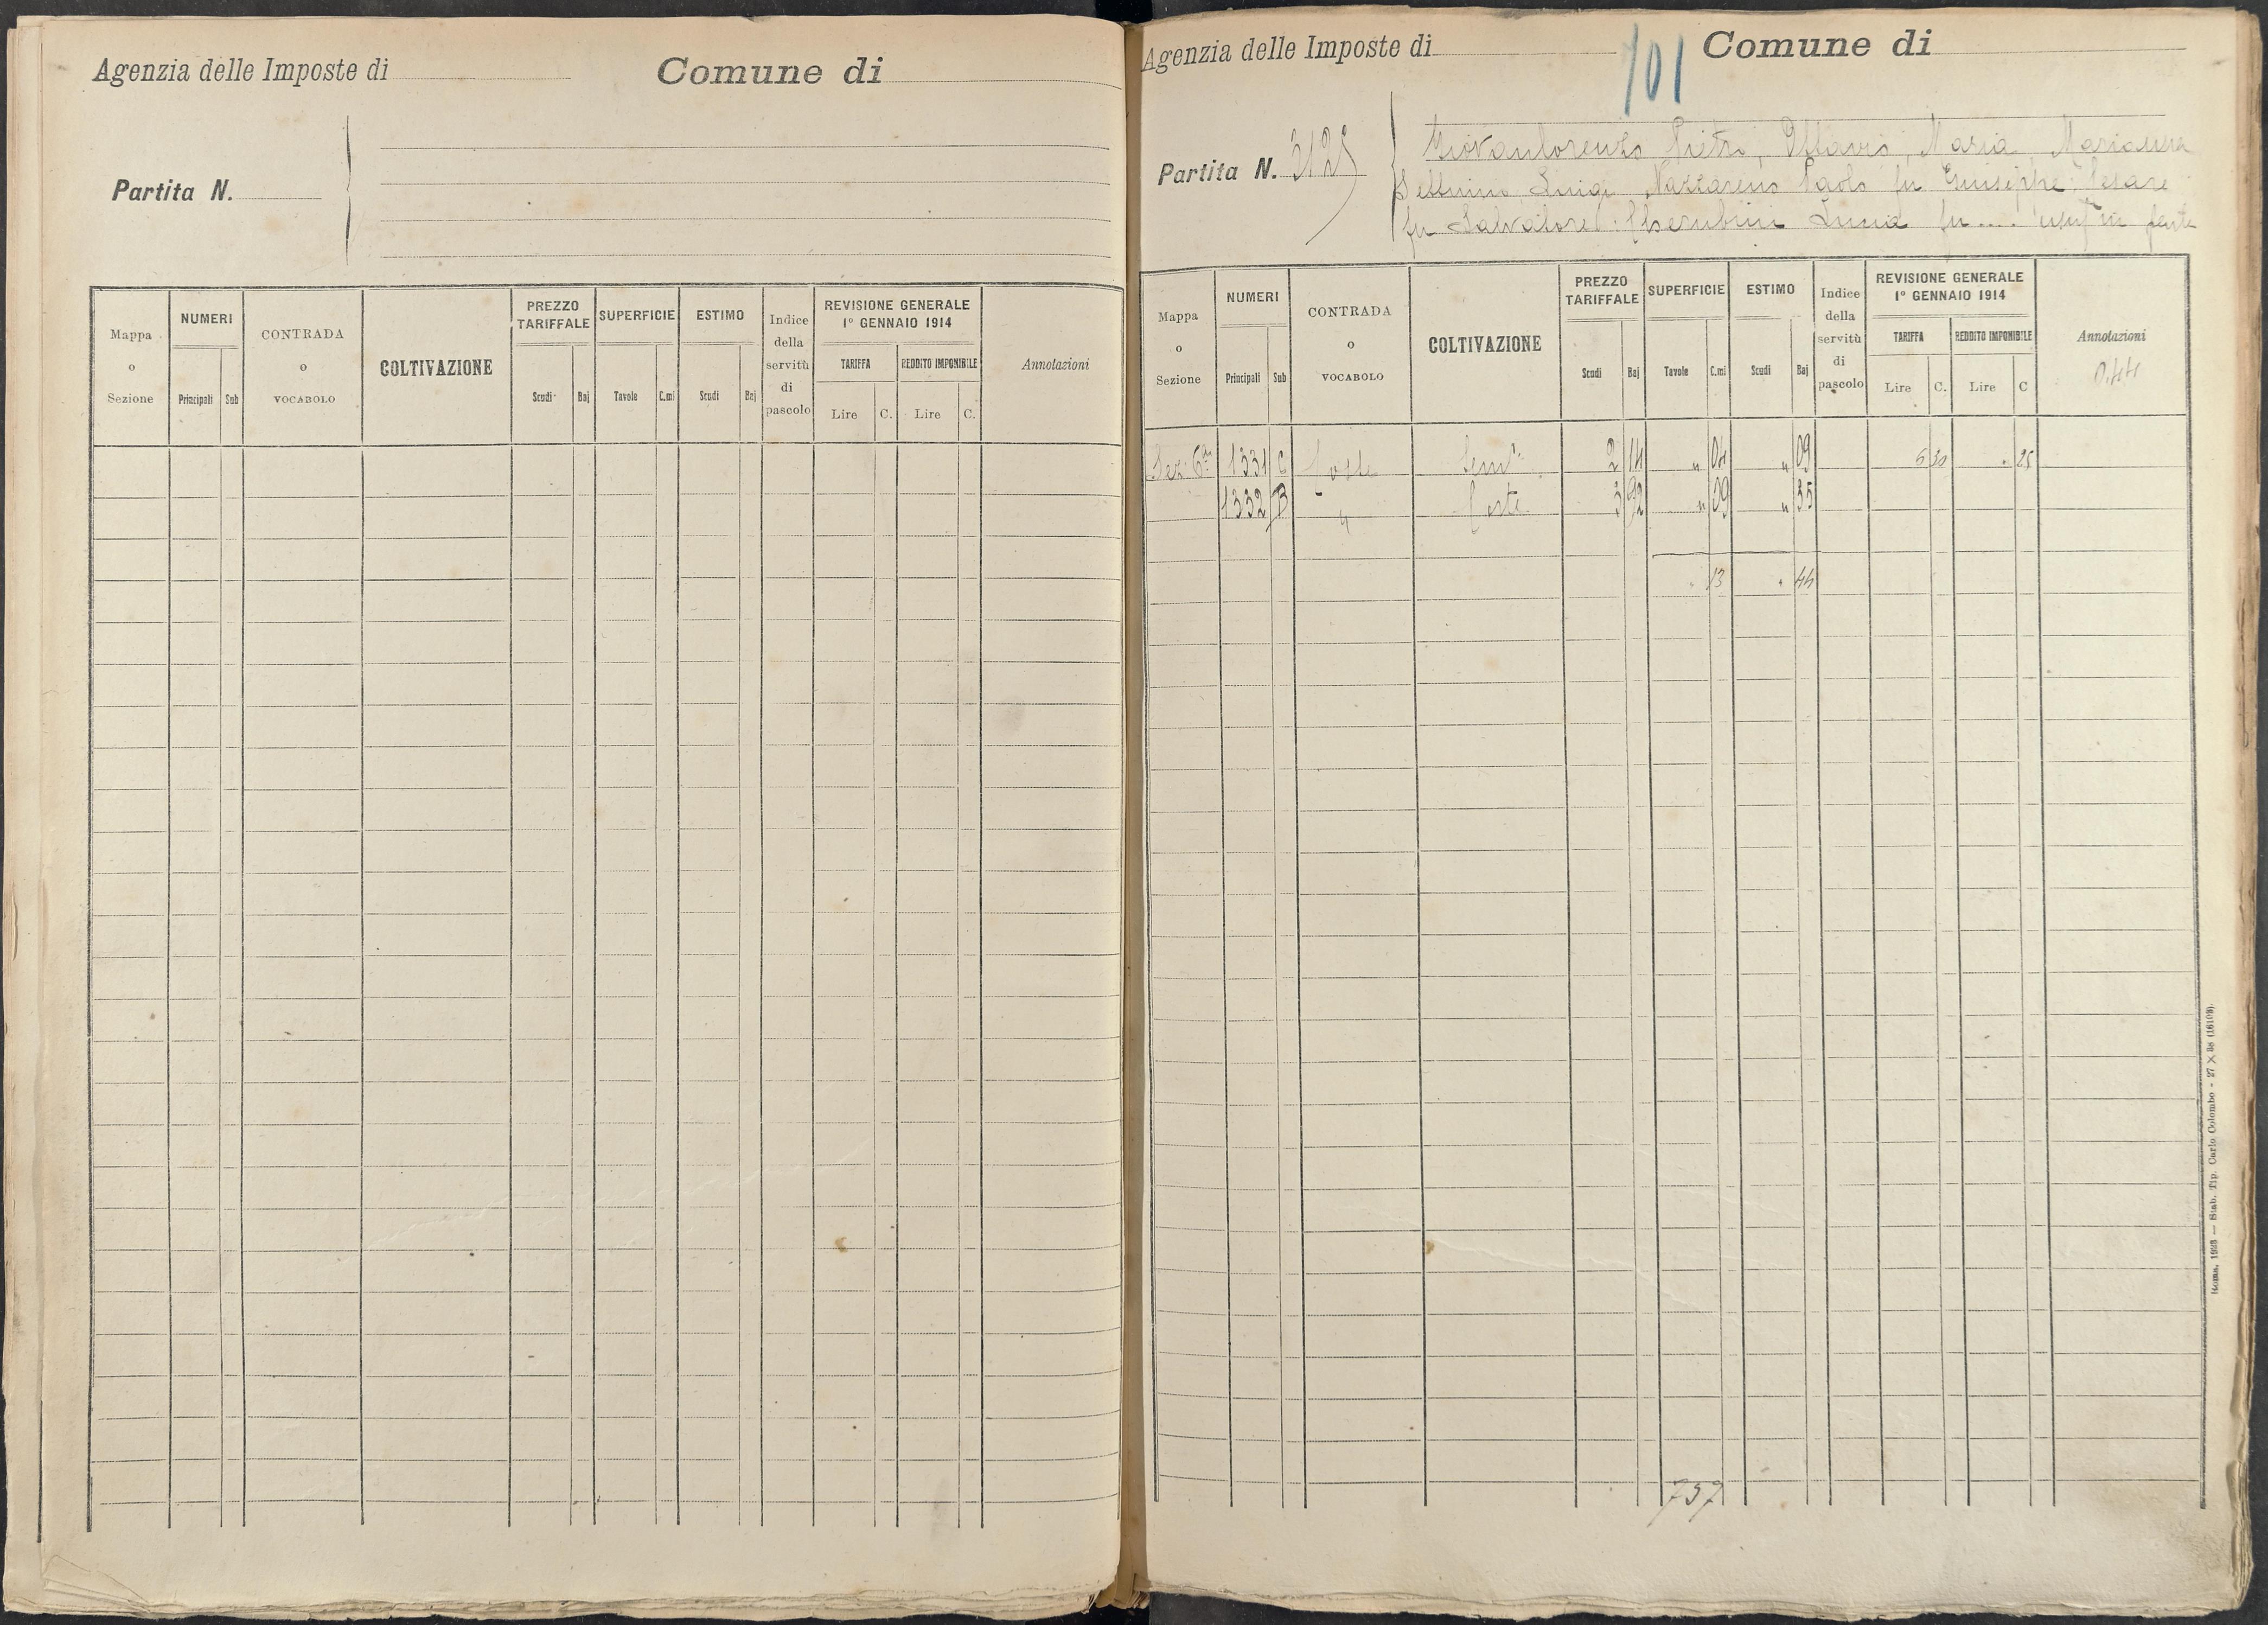 Agenzia delle Imposte di
Comune di
Partita N.
Mappa o Sezione
NUMERI
Principali
Sub
CONTRADA o VOCABOLO
COLTIVAZIONE
PREZZO TARIFFALE
Scudi
Baj
SUPERFICIE
Tavole
C.mi
ESTIMO
Scudi
Baj
Indice della servitù di pascolo
REVISIONE GENERALE 1° GENNAIO 1914
TARIFFA
Lire
C.
REDDITO IMPONIBILE
Lire
C.
Annotazioni
Agenzia delle Imposte di
701
Comune di
Partita N. 3125
Giovanlorenzo Pietro, Ottavio, Maria, Marianna
Settimio, Luigi, Nazzareno Paolo fu Giuseppe, Cesare
fu Salvatore: Cherubini Lucia fu .... usuf in parte
Mappa o Sezione
NUMERI
Principali
Sub
CONTRADA o VOCABOLO
COLTIVAZIONE
PREZZO TARIFFALE
Scudi
Baj
SUPERFICIE
Tavole
C.mi
ESTIMO
Scudi
Baj
Indice della servitù di pascolo
REVISIONE GENERALE 1° GENNAIO 1914
TARIFFA
Lire
C.
REDDITO IMPONIBILE
Lire
C
Annotazioni
0.44
Sez. 6ª 1331 C Coste Sem° 2 14 " 04 " 09 6 30 . 25
1332 B " 3 92 " 09 " 35
. 13 . 44
737
Roma, 1923 — Stab. Tip. Carlo Colombo - 27 X 38 (1610B).